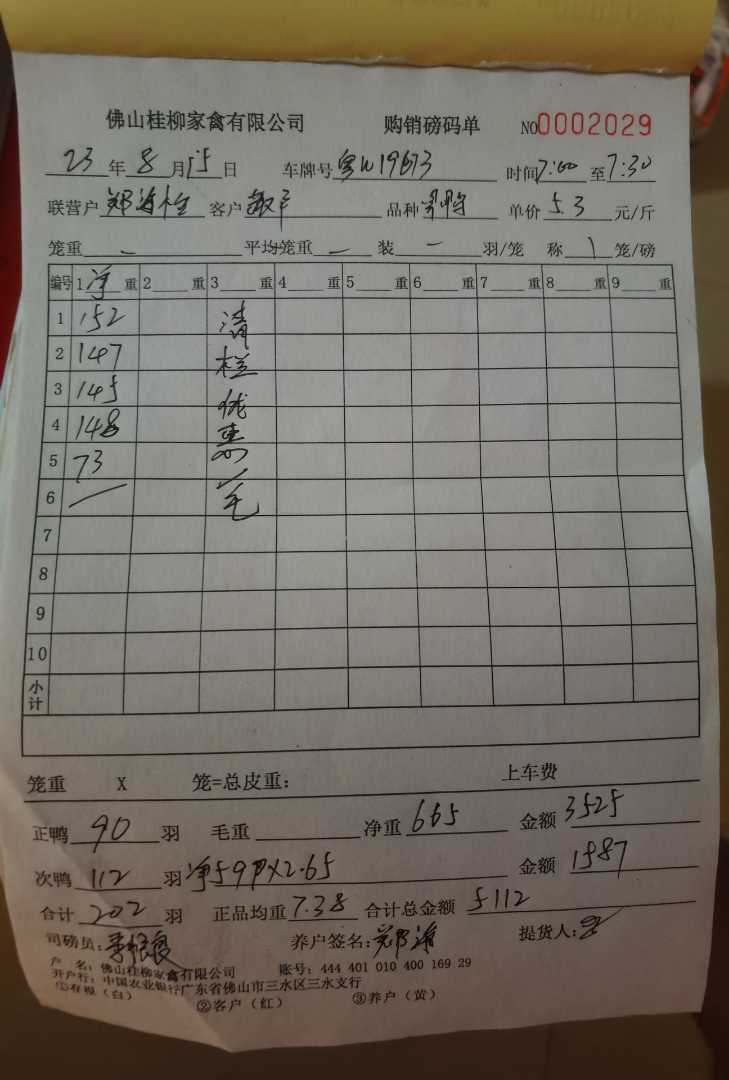 佛山桂柳家禽有限公司 购销磅码单 NO0002029
23年8月15日 车牌号粤W19673 时间7:00至7:30
联营户 客户 品种 单价5.3元/斤
笼重 — 平均笼重 — 装 — 羽/笼 称 1 笼/磅
编号 1净重 2 重 3 重 4 重 5 重 6 重 7 重 8 重 9 重
1 152 清
2 147 栏
3 145 优
4 148 惠
5 73
6 — 毛
7
8
9
10
小计
笼重 X 笼=总皮重: 上车费
正鸭90羽 毛重 净重665 金额3525
次鸭112羽净599×2.65 金额1587
合计202羽 正品均重7.38 合计总金额5112
司磅员: 养户签名: 提货人:
户 名:佛山桂柳家禽有限公司 账号:444 401 010 400 169 29
开户行:中国农业银行广东省佛山市三水区三水支行
①存根(白) ②客户(红) ③养户(黄)